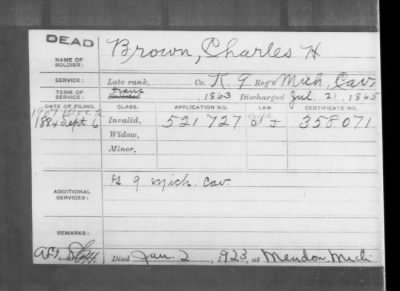 DEAD
NAME OF SOLDIER: Brown, Charles H
SERVICE: Late rank, Co. K, 9 Reg't Mich, Cav.
TERM OF SERVICE: , 1863 Discharged Jul. 21, 1865
DATE OF FILING. CLASS. APPLICATION NO. LAW CERTIFICATE NO.
1884 Sept 6 Invalid, 521727 358.071
Widow,
Minor,
ADDITIONAL SERVICES: G 9 Mich. Cav.
REMARKS:
Died Jan. 2, 1923, at Mendon Mich